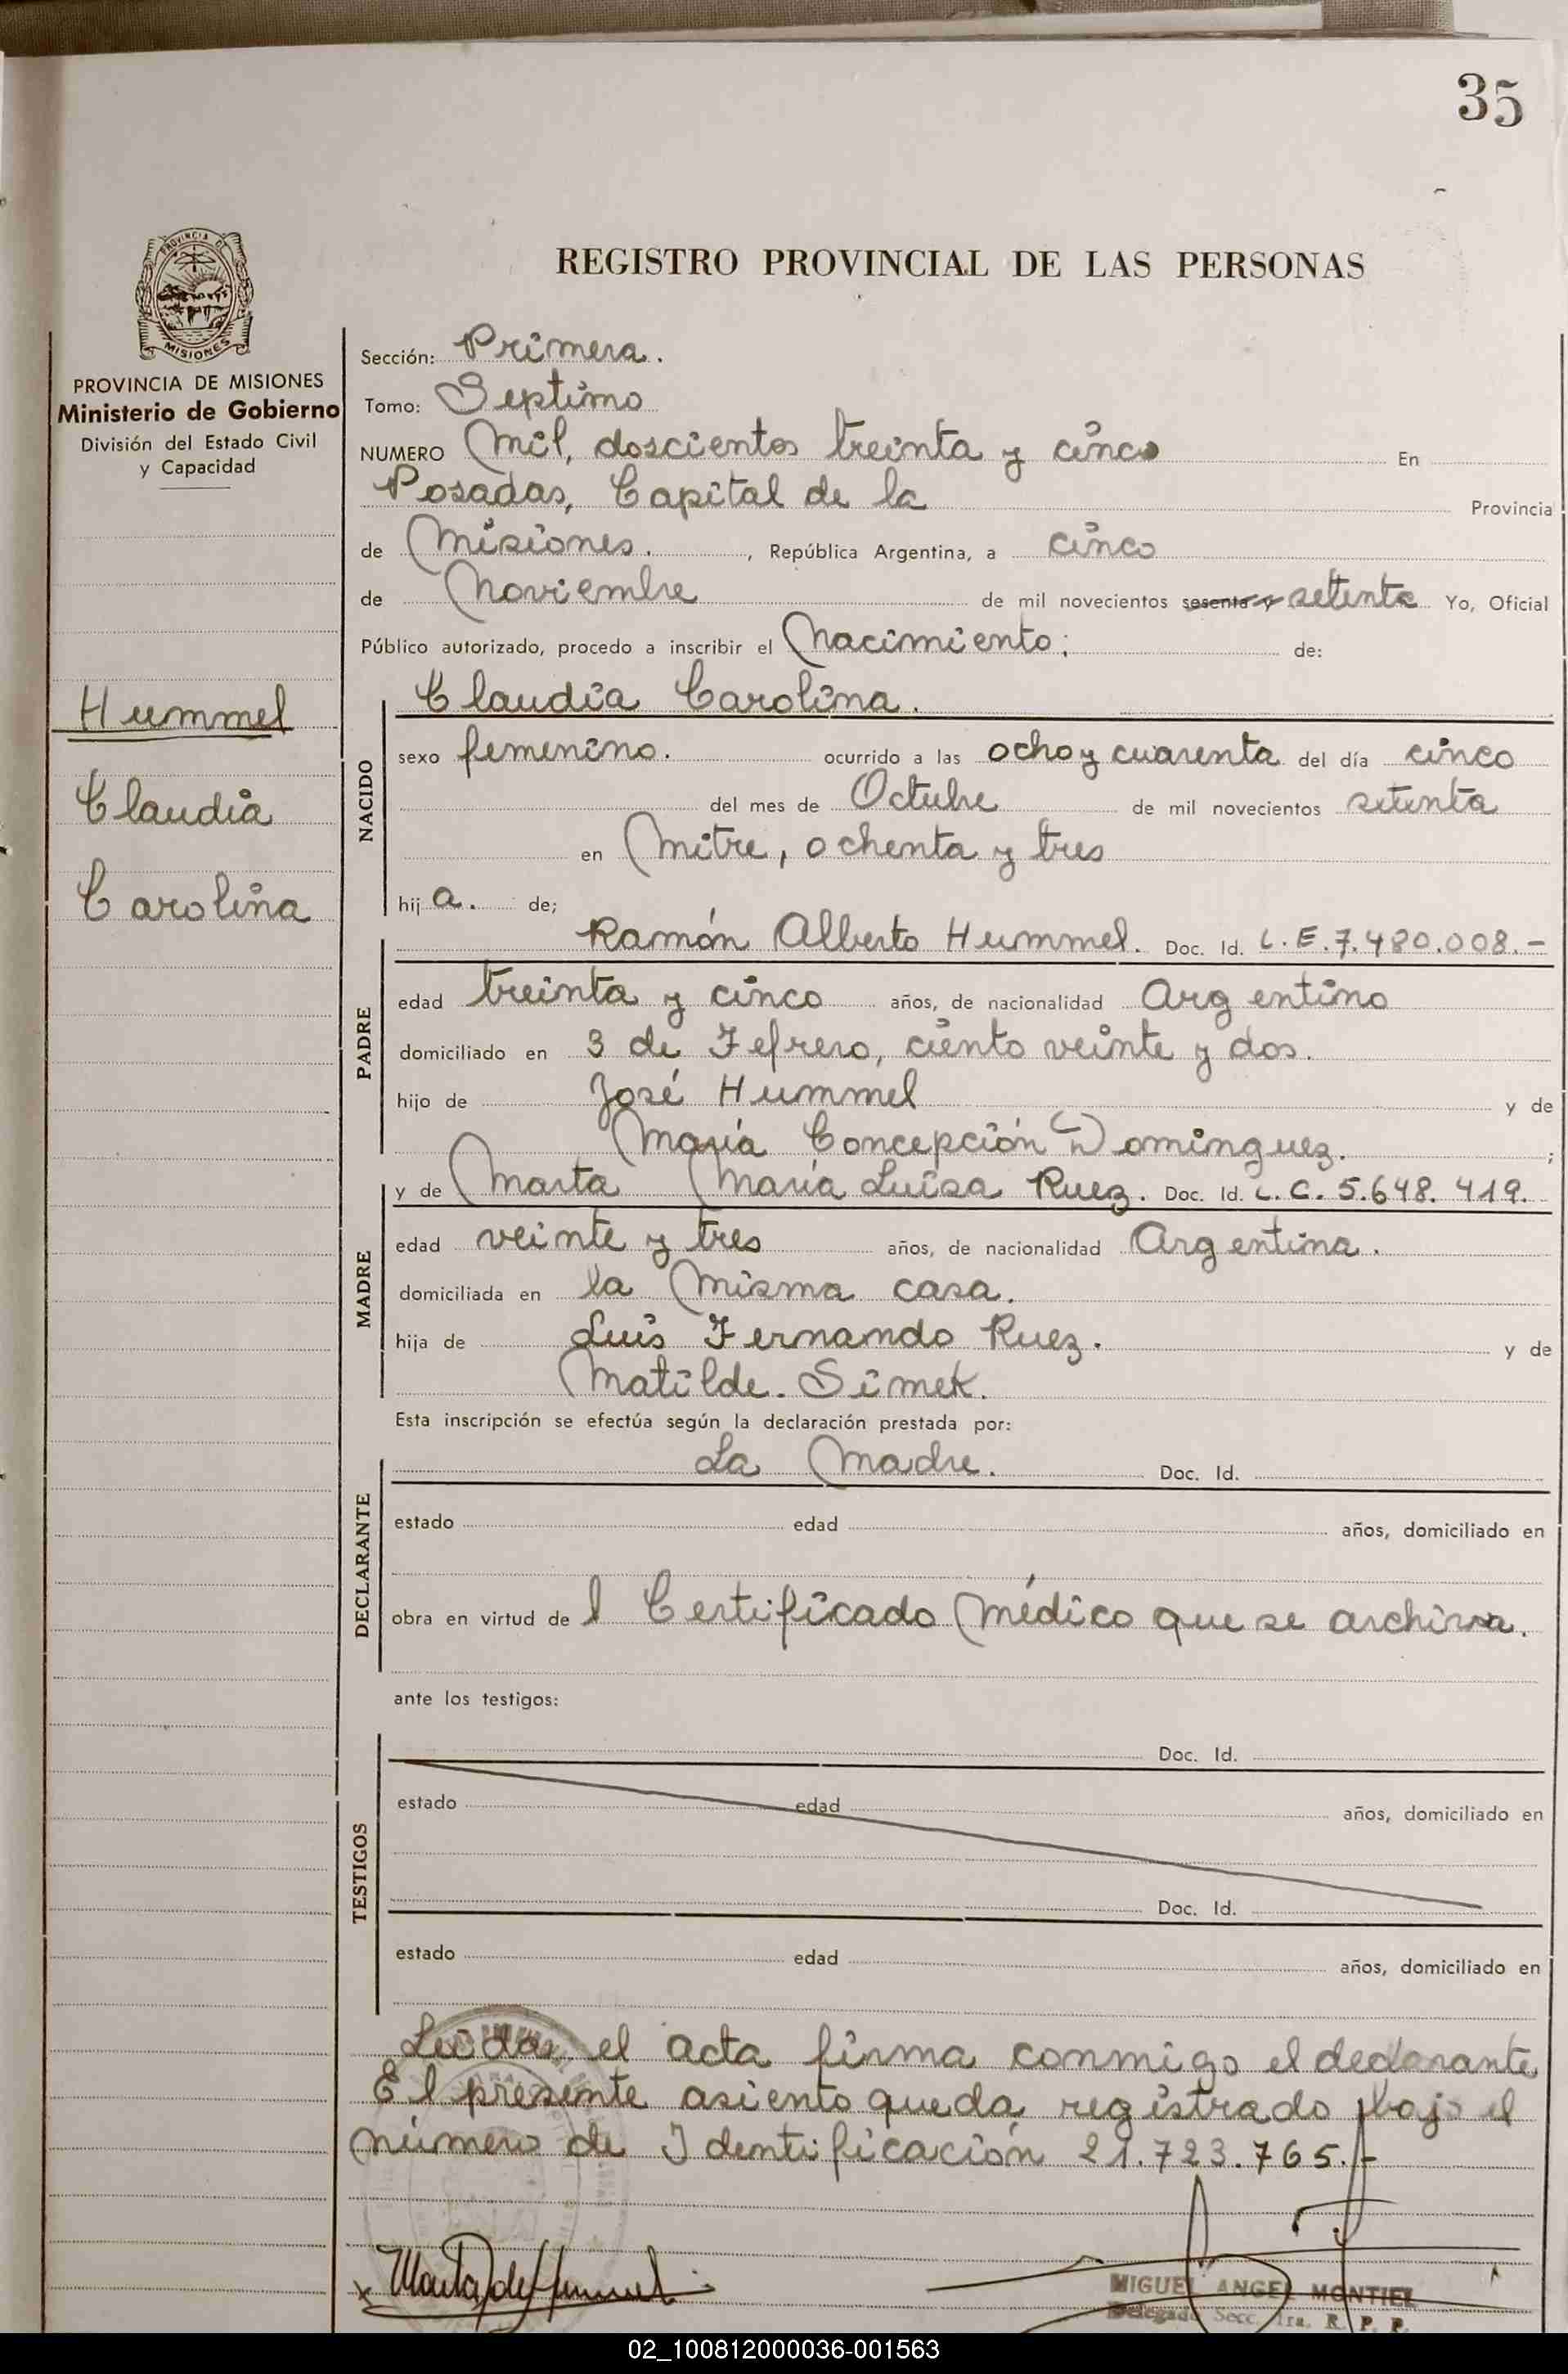 35
PROVINCIA DE MISIONES
MISIONES
PROVINCIA DE MISIONES
Ministerio de Gobierno
División del Estado Civil
y Capacidad
Hummel
Claudia
Carolina
REGISTRO PROVINCIAL DE LAS PERSONAS
Sección: Primera.
Tomo: Septimo
NUMERO Mil, doscientos treinta y cinco En
Posadas, Capital de la Provincia
de Misiones. , República Argentina, a cinco
de Noviembre de mil novecientos sesenta y setenta Yo, Oficial
Público autorizado, procedo a inscribir el Nacimiento; de:
Claudia Carolina.
NACIDO
sexo femenino. ocurrido a las ocho y cuarenta del día cinco
del mes de Octubre de mil novecientos setenta
en Mitre, ochenta y tres
hij a. de;
PADRE
Ramón Alberto Hummel. Doc. Id. L.E.7.480.008.-
edad treinta y cinco años, de nacionalidad Argentino
domiciliado en 3 de Fefrero, ciento veinte y dos.
hijo de José Hummel y de
María Concepción Dominguez. ;
MADRE
y de Marta María Luisa Ruez. Doc. Id. L.C.5.648.419.
edad veinte y tres años, de nacionalidad Argentina.
domiciliada en la Misma casa.
hija de Luis Fernando Ruez. y de
Matilde. Simek.
Esta inscripción se efectúa según la declaración prestada por:
DECLARANTE
La Madre. Doc. Id.
estado edad años, domiciliado en
obra en virtud de l Certificado Médico que se archiva.
ante los testigos:
TESTIGOS
Doc. Id.
estado edad años, domiciliado en
Doc. Id.
estado edad años, domiciliado en
Leida, el acta firma conmigo el declarante
El presente asiento queda registrado bajo el
número de Identificación 21.723.765.-
x Marta de Hummel
MIGUEL ANGEL MONTIEL
Delegado Secc. 1ra. R. P. P.
02_100812000036-001563